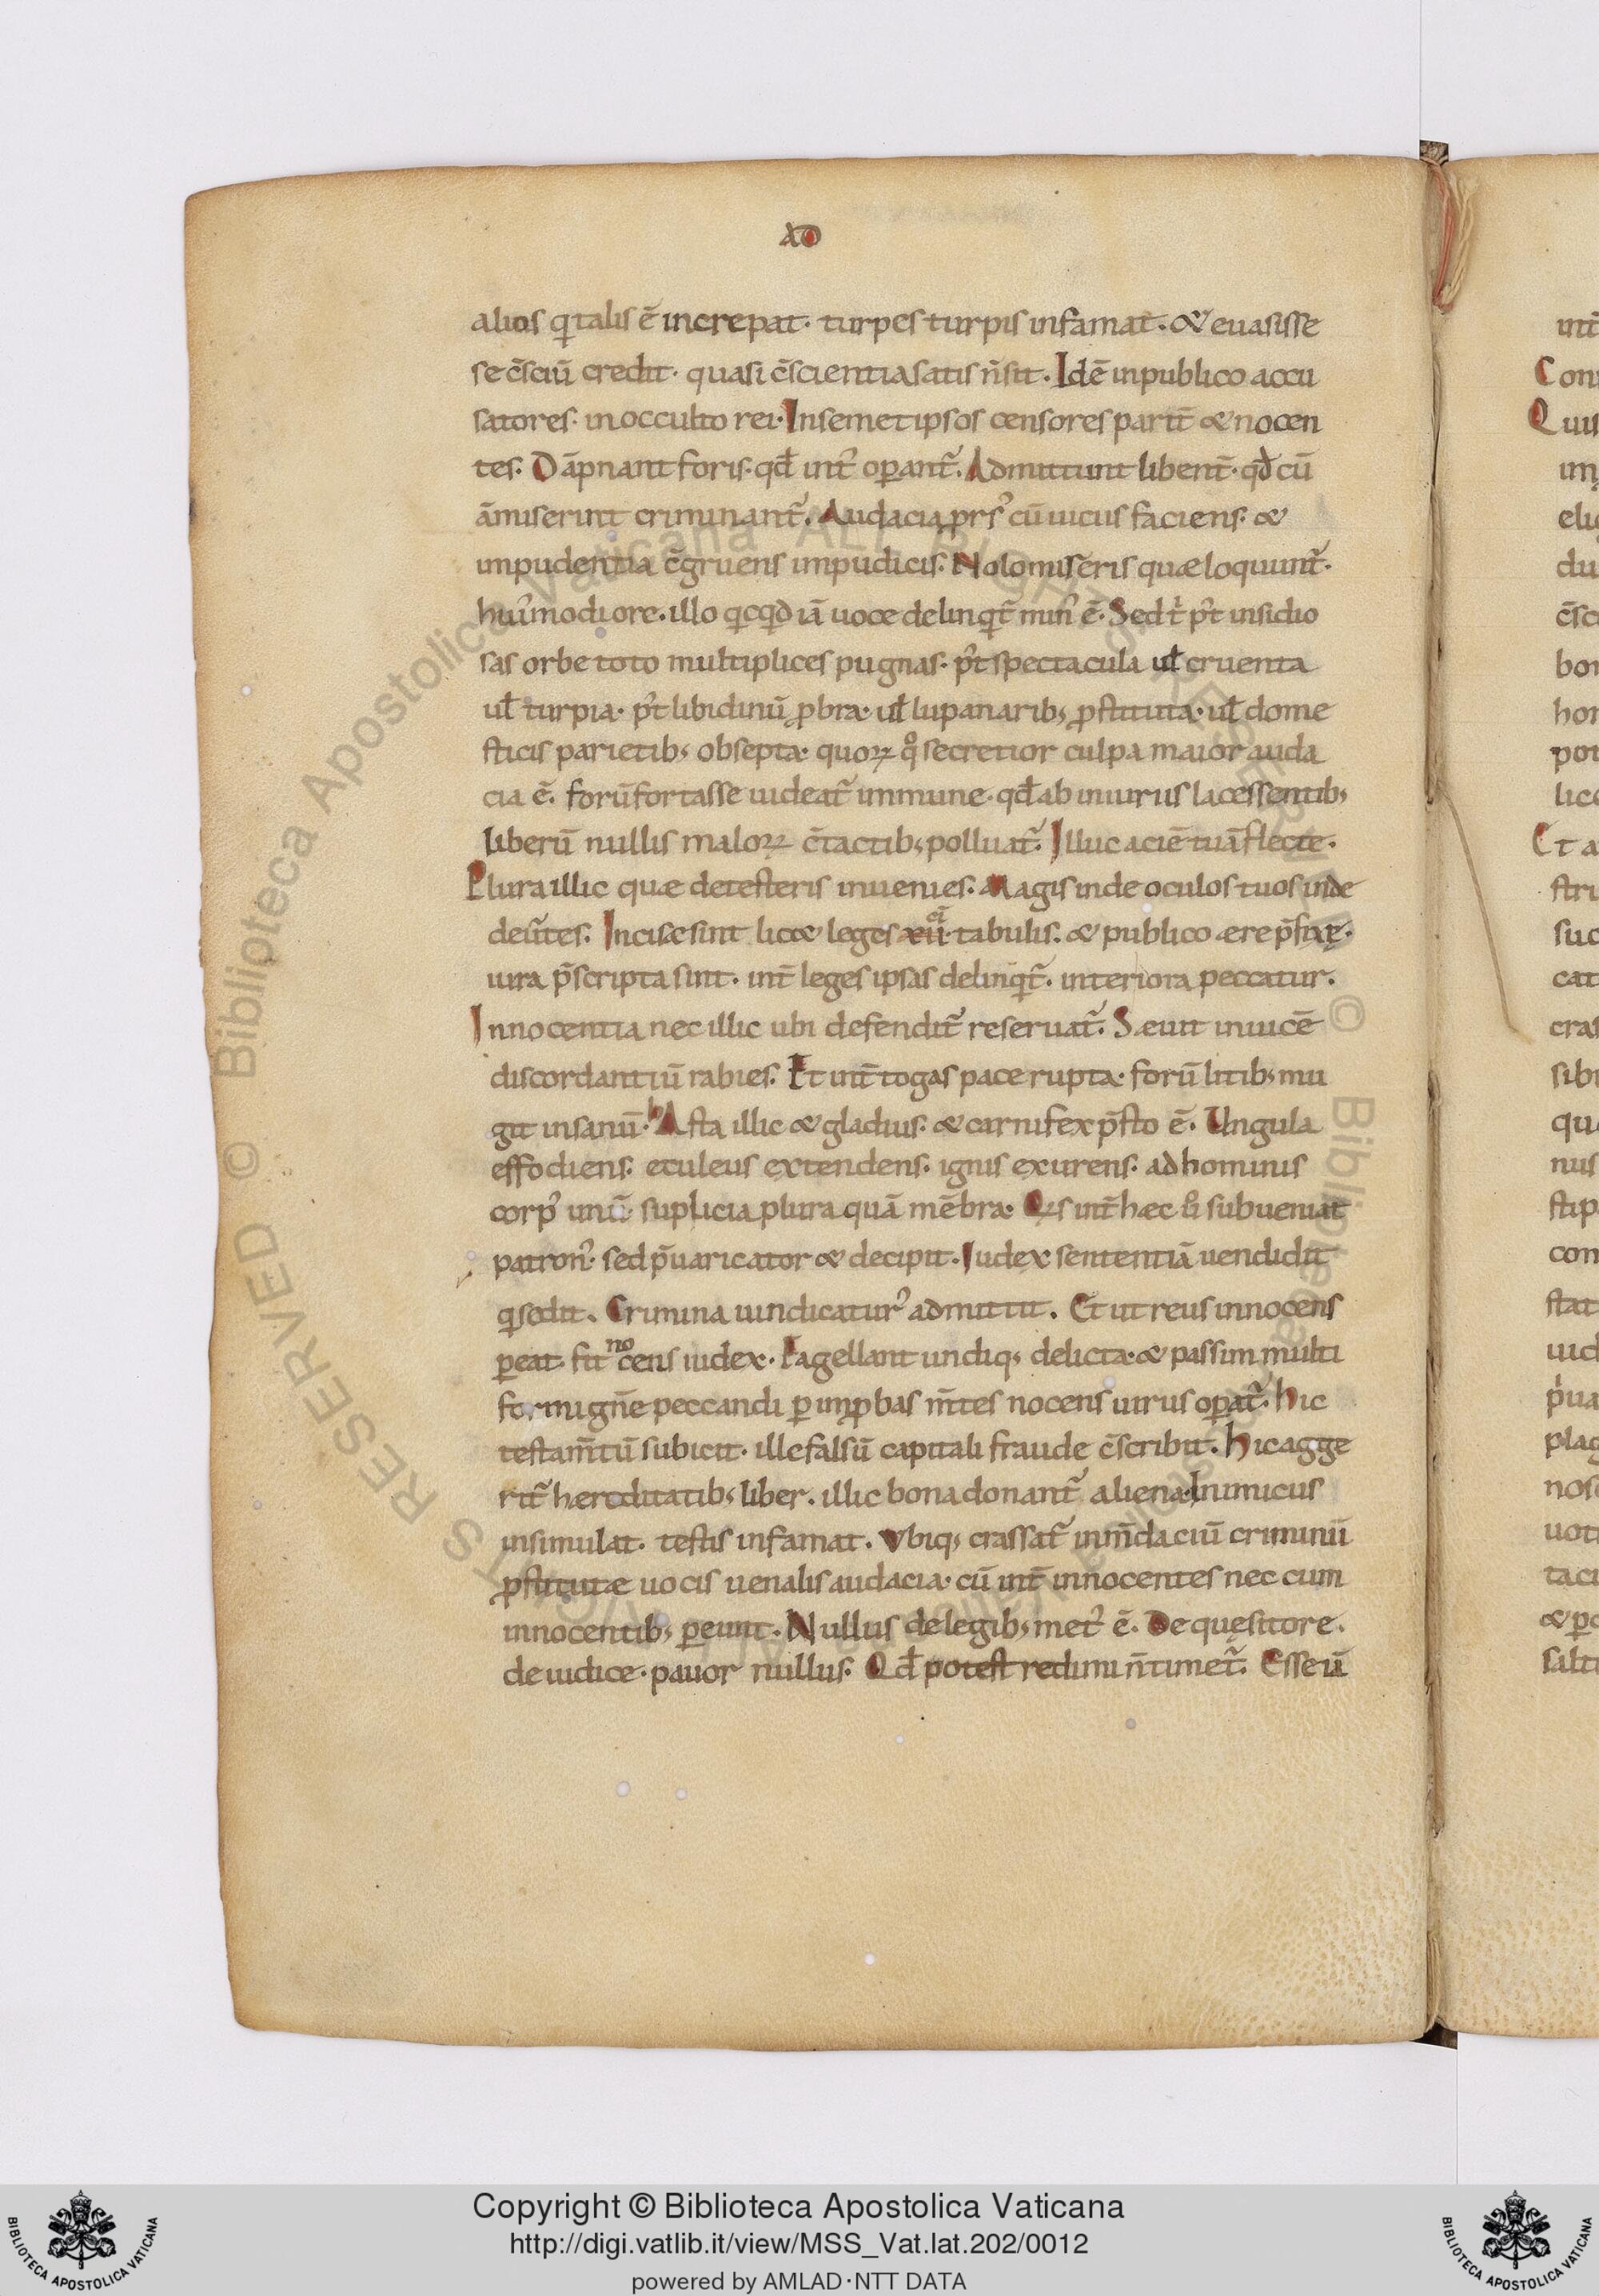 AD
alios q talis ē increpat· turpes turpis infamat· & euasisse
se c̄sciū credit· quasi c̄scientia satis n̄ sit· Idē in publico accu
satores· in occulto rei· In semetipsos censores parit̄ & nocen
tes· Dāpnant foris· qđ int᾽ oꝑant᷑· Admittunt libent̄· qđ cū
āmiserint criminant᷑· Audacia prrs᾽ cū uicus faciens· &
impudentia c̄gruens impudicis· Nolo miseris quæ loquunt᷑·
hui᾽modi ore· illo qcqd iā uoce delinqt᷑ min᾽ ē· Sed t᾽ p᾽t insidio
sas orbe toto multiplices pugnas· p᾽t spectacula ul̄ cruenta
ul̄ turpia· p᾽t libidinū ꝓbra· ul̄ lupanarib; ꝓstituta· ul̄ dome
sticis parietib; obsepta· quoꝝ qͦ secretior culpa maior auda
cia ē· forū fortasse uideat᷑ immune· qđ ab iniuriis lacessentib;
liberū nullis maloꝝ c̄tactib; polluat᷑· Illuc aciē tuā flecte·
Plura illic quæ detesteris inuenies· Magis inde oculos tuos inde
deūtes· Incisæ sint lic& leges xii· tabulis· & publico ære p̄fixę·
iura p̄scripta sint· int̄ leges ipsas delinqt᷑· inter iora peccatur·
Innocentia nec illic ubi defendit᷑ reseruat᷑· Sæuit inuicē
discordantiū rabies· Et int̄ togas pace rupta· forū litib; mu
git insanū· hAsta illic & gladius· & carnifex p̄sto ē· Ungula
effodiens· eculeus extendens· ignis exurens· ad hominis
corp᾽ unū· suplicia plura quā mēbra· Qis int̄ hæc u᾽ subueniat
patron᾽· sed p̄uaricator & decipit· Iudex sententiā uendidit
q sedit· Crimina uindicatur᾽ admittit· Et ut reus innocens
ꝑeat fit nocens iudex· Fagellant undiq; delicta· & passim multi
formi gn̄e peccandi ꝑ imꝓbas m̄tes nocens uirus oꝑat᷑· hic
testam̄tū subicit· ille falsū capitali fraude c̄scribit· hic agge
rit᷑ hereditatib; liber· illic bona donant᷑ aliena· Inimicus
insimulat· testis infamat· Vbiq; crassat᷑ in m̄daciū criminū
ꝓstitutæ uocis uenalis audacia· cū int̄ innocentes nec cum
innocentib; ꝑeunt· Nullus de legib; met᾽ ē· De quęsitore·
de iudice· pauor nullus· Qđ potest redimi n̄ timet᷑· Esse ū
Copyright © Biblioteca Apostolica Vaticana
http://digi.vatlib.it/view/MSS_Vat.lat.202/0012
powered by AMLAD·NTT DATA